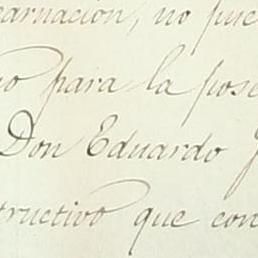 carnación, no pue
o para la pose
Don Eduardo
tructivo que con